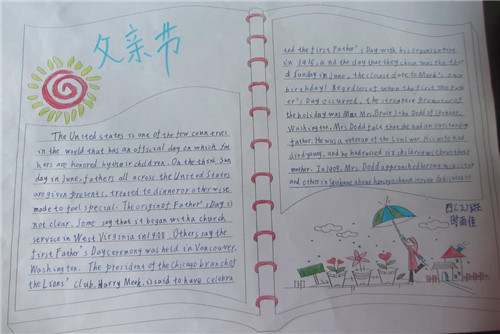 父亲节
The United states is one of the few countries
in the world that has an official day on which fat
hers are honored by their children. On the third Sun
day in June, fathers all across the United States
are given presents, treated to dinner or otherwise
made to feel special. The origin of Father's Day is
not clear. Some say that it began with a church
service in West Virginia in 1908. Others say the
first Father's Day ceremony was held in Vancouver,
Washington. The president of the Chicago branch of
the Lions' club, Harry Meek, is said to have celebra
ted the first Father's Day with his organization
in 1915, and the day that they chose was the thir
d Sunday in June, the closest date to Meek's own
birthday! Regardless of when the first
er's Day occurred, the strongest promoter of
the holiday was Mrs. Bruce John Dodd of Spokane,
Washington. Mrs. Dodd felt that she had an outstanding
father. He was a veteran of the Civil War. His wife had
died young, and he had raised six children without their
mother. In 1909, Mrs. Dodd approached her own minister
and others in Spokane about having a church service dedicated